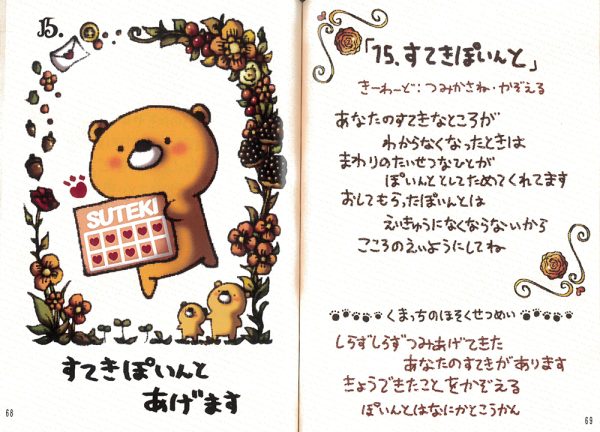 15.
SUTEKI
すてきぽいんと
あげます
68
「15.すてきぽいんと」
きーわーど:つみかさね・かぞえる
あなたのすてきなところが
わからなくなったときは
まわりのたいせつなひとが
ぽいんととしてためてくれてます
おしてもらったぽいんとは
えいきゅうになくならないから
こころのえいようにしてね
くまっちのほそくせつめい
しらずしらずつみあげてきた
あなたのすてきがあります
きょうできたことをかぞえる
ぽいんとはなにかとこうかん
69